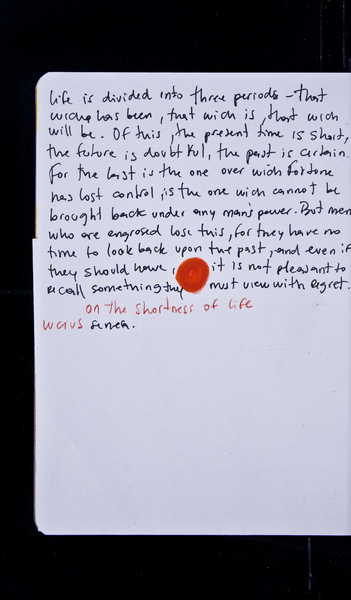 life is divided into three periods - that
wich has been, that wich is, that wich
will be. Of this, the present time is short,
the future is doubtful, the past is certain.
For the last is the one over wich fortune
has lost control, is the one wich cannot be
brought back under any man's power. But men
who are engrosed lose this, for they have no
time to look back upon the past, and even if
they should have, it is not pleasant to
recall something they must view with regret.
on the shortness of life
Lucius seneca.